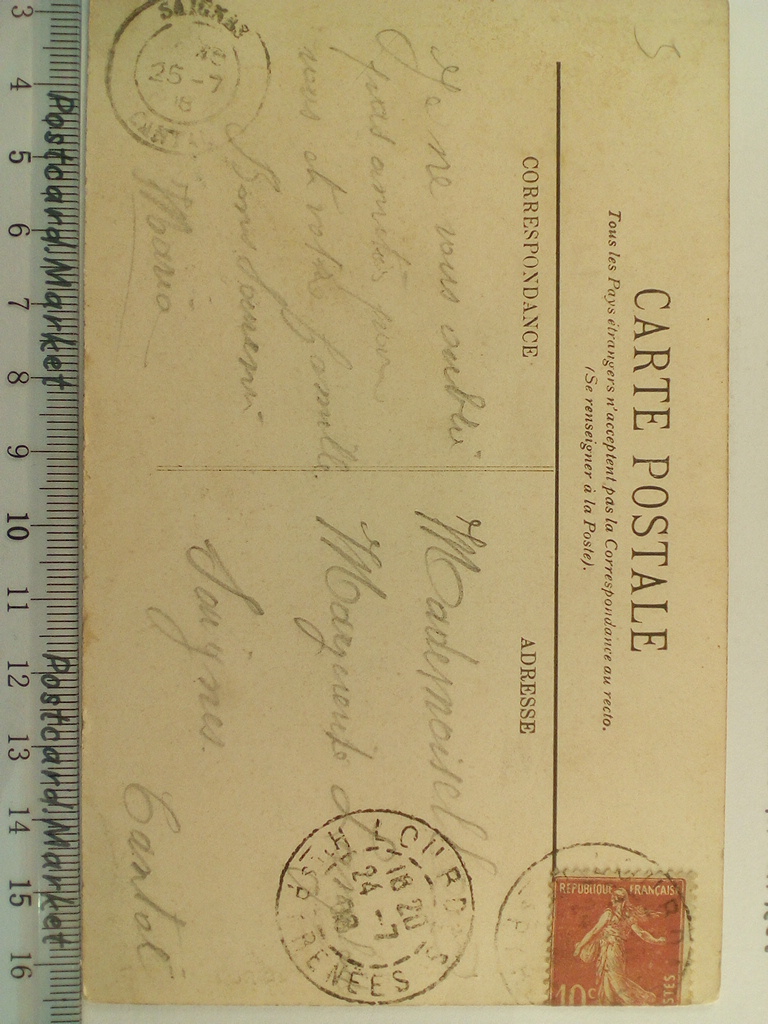 CARTE POSTALE
Tous les Pays étrangers n'acceptent pas la Correspondance au recto.
(Se renseigner à la Poste).
CORRESPONDANCE
ADRESSE
Je ne vous oublie
pas amitiés pour
vous et votre famille.
Bons Souvenirs
Maria
Mademoiselle
Marguerite
Saignes.
Cantal
REPUBLIQUE FRANÇAISE
10c
POSTES
LOURDES
18 20
24 -7
HTES PYRENEES
SAIGNES
25 -7
16
CANTAL
3 4 5 6 7 8 9 10 11 12 13 14 15 16
Postcard.Market
Postcard.Market